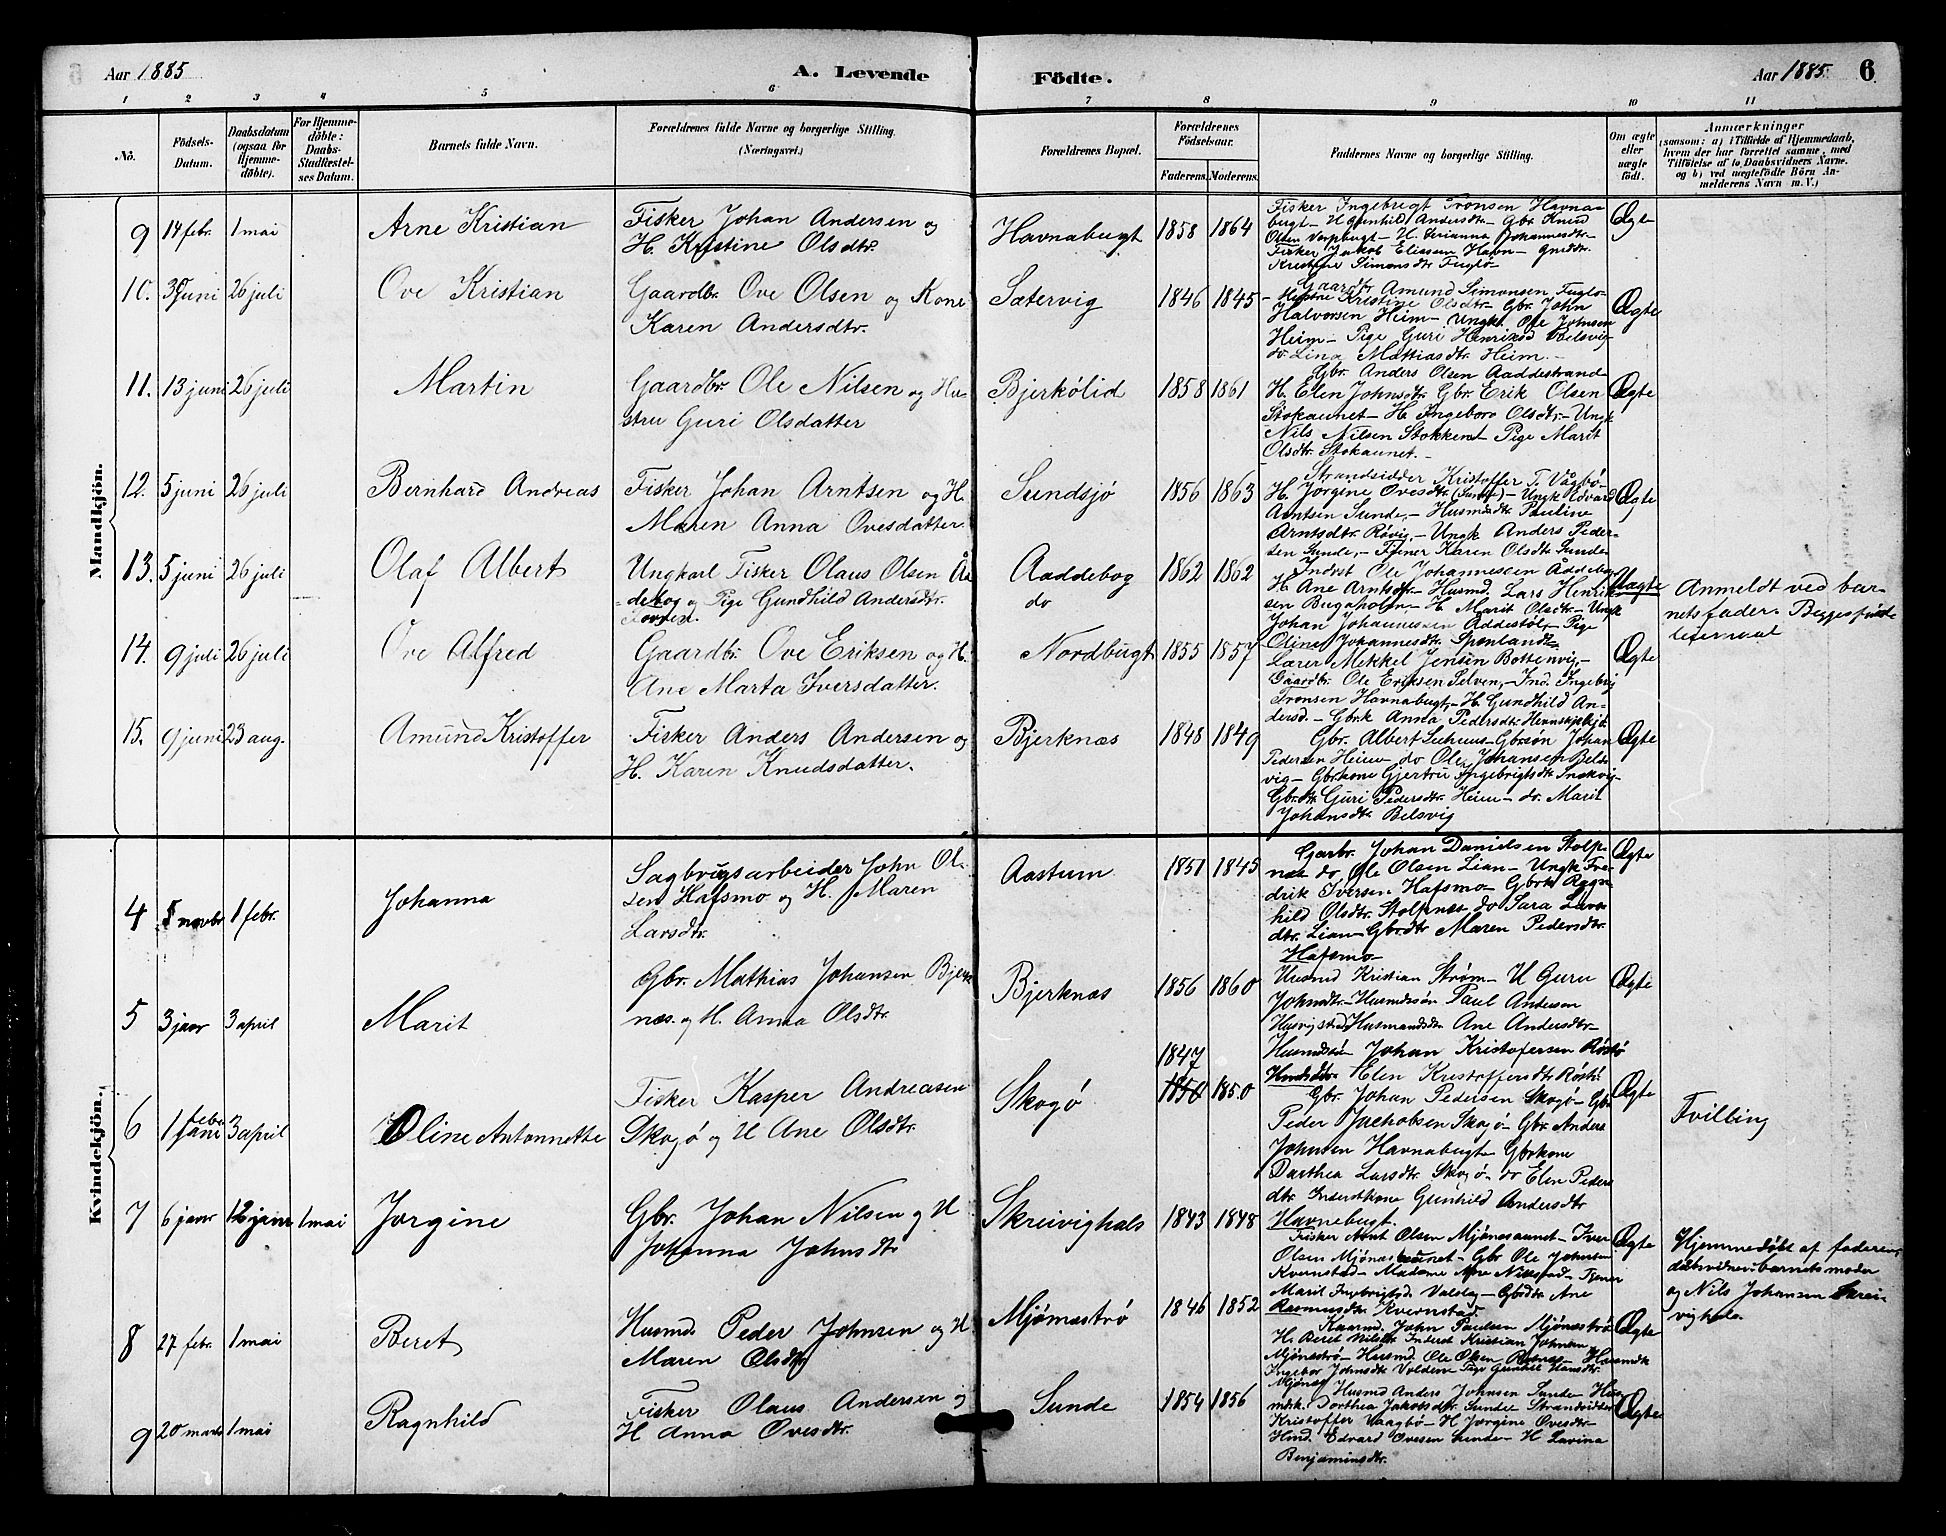 Aar 1885
A. Levende
Födte.
Aar 1885
6
1 2 3 4 5 6 7 8 9 10 11
No.
Födsels-
Datum.
Daabsdatum
(ogsaa for
Hjemme-
döbte).
For Hjemme-
döbte:
Daabs-
Stadfæstel-
ses Datum.
Barnets fulde Navn.
Forældrenes fulde Navne og borgerlige Stilling.
(Næringsvei.)
Forældrenes Bopæl.
Forældrenes
Födselsaar.
Faderens. Moderens.
Faddernes Navne og borgerlige Stilling.
Om ægte
eller
uægte
födt.
Anmærkninger
(saasom: a) i Tilfælde af Hjemmedaab,
hvem der har forrettet samme, med
Tilföielse af to Daabsvidners Navne.
og b) ved uægtefödte Börn An-
melderens Navn m. V.)
Mandkjön.
9 14 febr. 1 mai
Arne Kristian
Fisker Johan Andersen og
H. Kristine Olsdtr.
Havnabugt 1858 1864
Fisker Ingebrigt Tronsen Havna-
bugt - H Gunhild Andersdtr - Gbr. Knud
Olsen Vorpbugt - H. Johannesdtr -
Fisker Jakob Eliassen Havn -
Kristine Simonsdtr Fuglø -
Ægte
10. 3 Juni 26 juli
Ove Kristian
Gaardbr. Ove Olsen og Kone
Karen Andersdtr.
Sætervig 1846 1845
Gaardbr Amund Simonsen Fuglø -
Kristine Olsdtr - Gbr. John
Halvorsen Heim - Ungk. Ole Johnsen
Heim - Pige Guri Henriksd Belsvig
do Lina Mattiasdtr. Heim. -
Ægte
11. 13 juni 26 juli
Martin
Gaardbr. Ole Nilsen og Hu-
stru Guri Olsdatter
Bjerkölid 1858 1861
Gbr. Anders Olsen Aaddestrand
H. Elen Johnsdtr. Gbr. Erik Olsen
Stokaunet - H. Ingeborg Olsdtr. - Ungk
Nils Nilsen Stokken Pige Marit
Olsdtr. Stokaunet. -
Ægte
12. 5 juni 26 juli
Bernhard Andreas
Fisker Johan Arntsen og H.
Maren Anna Ovesdatter.
Sundsjø 1856 1863
Strandsidder Kristoffer T. Vågbø -
H. Jørgine Ovesdtr. (Sunde) - Ungk Edvard
Arntsen Sunde, - Husmdtr Pauline
Arntsdtr. Røvig, - Ungk Anders Peder-
sen Sunde, - Karen Olsdtr Sunde
Ægte
13. 5 juni 26 juli
Olaf Albert
Ungkarl Fisker Olaus Olsen Å-
debog og Pige Gundhild Andersdtr.
Aaddebog
do
1862 1862
Inderst Ole Johannessen Åddebog
H. Ane Arntsdtr - Husmd. Lars Henrik-
sen Bugaholm - H. Marit Olsdtr - Ungk
Johan Johannessen Åddestøl, - Pige
Oline Johannesdtr. -
Uægte
Anmeldt ved bar-
nets fader. Begges første
leiermaal
14. 9 juli 26 juli
Ove Alfred
Gaardbr. Ove Eriksen og H.
Ane Marta Iversdatter.
Nordbugt 1855 1857
Lærer Mekkel Jensen Bottenvig, -
Gaardbr. Ole Eriksen Selven, - Ind. Ingebrig
Tronsen Havnabugt, - H. Gundhild An-
dersd. - Gbrk Anna Pedersdtr.
Ægte
15. 9 juni 23 aug.
Amund Kristoffer
Fisker Anders Andersen og
H. Karen Knudsdatter.
Bjerknæs 1848 1849
Gbr. Albert - Gbrsøn Johan
Pedersen Heim - do Ole Johansen Bels-
vig - Gbrkone Gjertru Ingebrigtsdtr Snekvig -
Gbr.dtr. Guri Pedersdtr. Heim - do. Marit
Johansdtr. Belsvig
Ægte
Kvindekjön.
4 5 novbr 1 febr.
Johanna
Sagbrugsarbeider John Ol-
sen Hafsmo og H. Maren
Larsdtr.
Aastum 1851 1845
Gaardbr. Johan Danielsen Stolp-
næs do Ole Olsen Lian - Ungk Fre-
drik Iversen Hafsmo - Gbrk Ragn-
hild Olsdtr. Stolpnæs do Sara Lars-
dtr. Lian - Gbr.dtr Maren Pedersdtr.
Hafsmo -
Ægte
5 3 janr 3 april
Marit
Gbr. Mathias Johansen Bjerk-
næs. og H. Anna Olsdtr
Bjerknæs 1856 1860
Husmd Kristian Strøm - H Guru
Johnsdtr. - Husmdssøn Paul Andersen
Husmandsdtr Ane Andersdtr. -
Husmdssøn Johan Kristofersen Røstø
Husmdsdtr. Elen Kristoffersdtr Røstø
Ægte
6 1 febr 3 april
Oline Antonnette
Fisker Kasper Andreasen
Skogø og H Ane Olsdtr.
Skogø 1847 1850
Gbr. Johan Pedersen Skogø - Gbr
Peder Jachobsen Skogø - Gbr Anders
Johnsen Havnabugt Gbrkone
Darthea Larsdtr. Skogø do Elen Peders-
dtr. Inderstkone Gunhild Andersdtr
Havnebugt.
Ægte
Tvilling
7 6 janr 12 janr 1 mai
Jørgine
Gbr. Johan Nilsen og H
Johanna Johnsdtr
Skreivighals 1843 1848
Fisker Arnt Olsen Mjønesaunet - Iver
Olsen Mjønesaunet - Gbr Ole Johnsen
Kvernstad - Madame Ane -
Marit Ingbrigtsd. Valslag - Gbrdtr Ane
Rasmusdtr Kvernstad.
Ægte
Hjemmedøbt af faderen,
dåbsvidner barnets moder
og Nils Johansen Skrei-
vighals.
8 27 febr. 1 mai
Beret
Husmd. Peder Johnsen og H
Maren Olsdtr
Mjønæstrø 1846 1852
John Paulsen Mjønæstrø
H. Beret Nilsdtr Inderst Kristian Johnsen
Mjønestrø - Husmd. Ole Olsen - Husmdk
Ingebor Johnsdtr Pige Gunhild Hansdtr.
Mjønæs
Ægte
9 20 marts 1 mai
Ragnhild
Fisker Olaus Andersen og
H Anna Ovesdtr.
Sunde 1854 1856
Husmd Anders Johnsen Sunde Hus-
mdk. Dorthea Jakobsdtr Sunde Strandsidder
Kristoffer Vaagbø - H Jørgine Ovesdtr -
Hmd. Edvard Ovesen Sunde - H Lavina
Benjaminsdtr.
Ægte